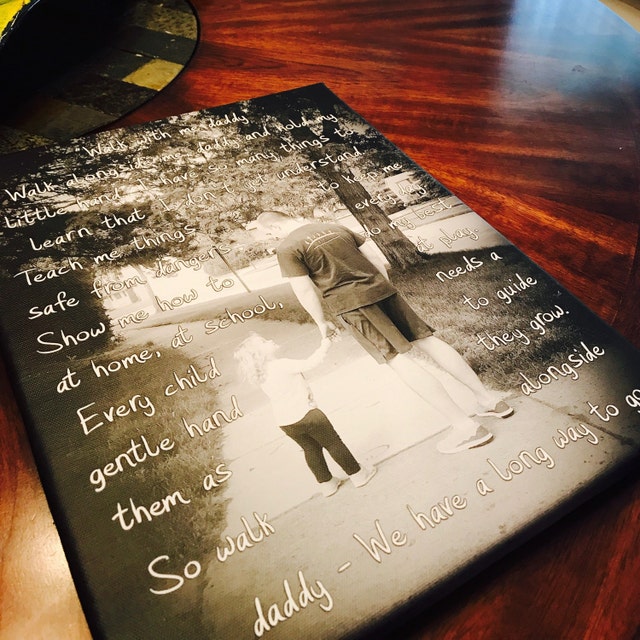 Walk with me daddy
Walk alongside me daddy and hold my
little hand. I have so many things to
learn that I don't yet understand.
Teach me things to keep me
safe from dangers every day.
Show me how to do my best
at home, at school, at play.
Every child needs a
gentle hand to guide
them as they grow.
So walk alongside
daddy - We have a long way to go